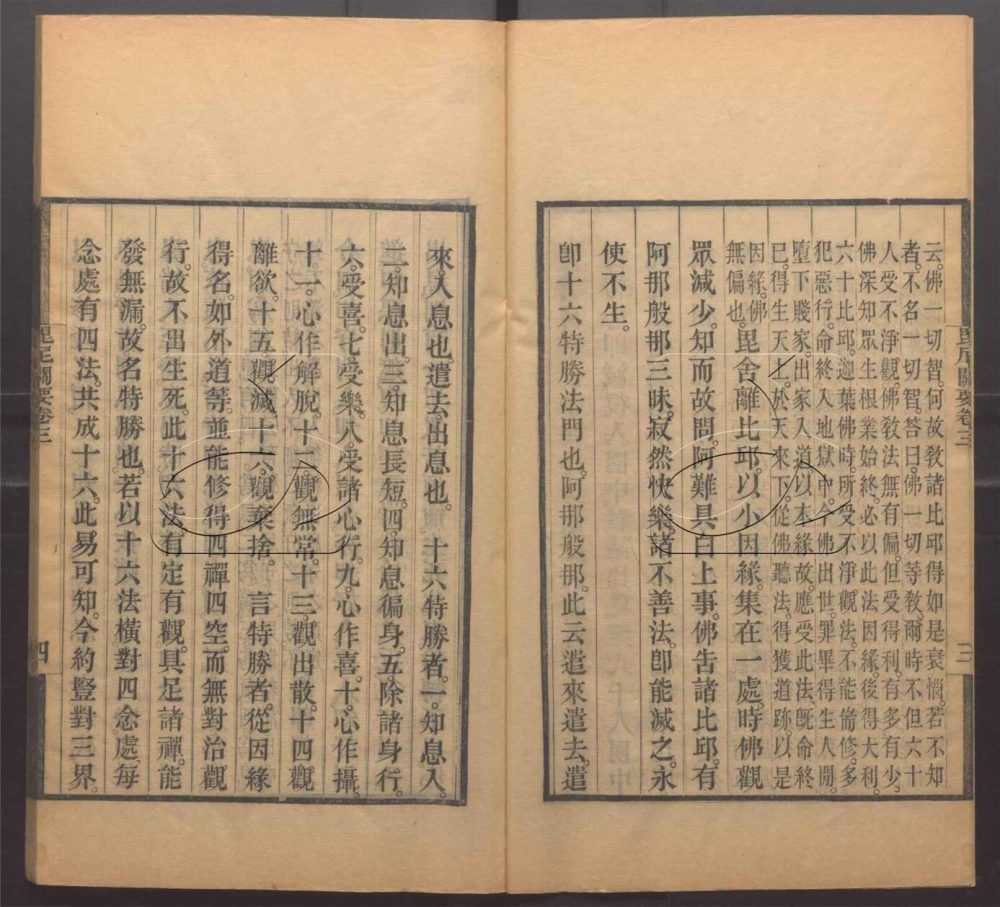 云。佛一切智。何故敎諸比邱得如是衰惱。若不知
者。不名一切智。答曰。佛一切等敎。爾時不但六十
人受不淨觀。佛敎法無有偏。但受得利。有多有少。
佛深知眾生根業始終。必以此法因緣。後得大利
六十比邱。迦葉佛時。所受不淨觀法。不能崙修。多
犯惡行。命終入地獄中。今佛出世。罪畢得生人閒。
墮下賤家。出家入道。以本緣故。應受此法。旣命終
巳。得生天上。於天來下。從佛聽法。得獲道跡。以是
因緣。佛
無偏也。
毘舍離比邱。以小因緣。集在一處。時佛觀
眾減少。知而故問。阿難具白上事。佛告諸比邱。有
阿那般那三昧。寂然快樂。諸不善法。卽能滅之。永
使不生。
卽十六特勝法門也。阿那般那。此云遣來遣去。遣
毘尼關要卷三
三
來。入息也。遣去出息也。 十六特勝者。一。知息入。
二。知息出。三。知息長短。四。知息徧身。五。除諸身行。
六。受喜。七受樂。八受諸心行。九。心作喜。十。心作攝。
十一。心作解脫。十二。觀無常。十三觀出散。十四觀
離欲。十五觀滅。十六。觀棄捨。 言特勝者。從因緣
得名。如外道等。並能修得四禪四空。而無對治觀
行。故不出生死。此十六法。有定有觀。具足諸禪。能
發無漏。故名特勝也。若以十六法橫對四念處。每
念處有四法。共成十六。此易可知。今約豎對三界。
毘尼關要卷三
四